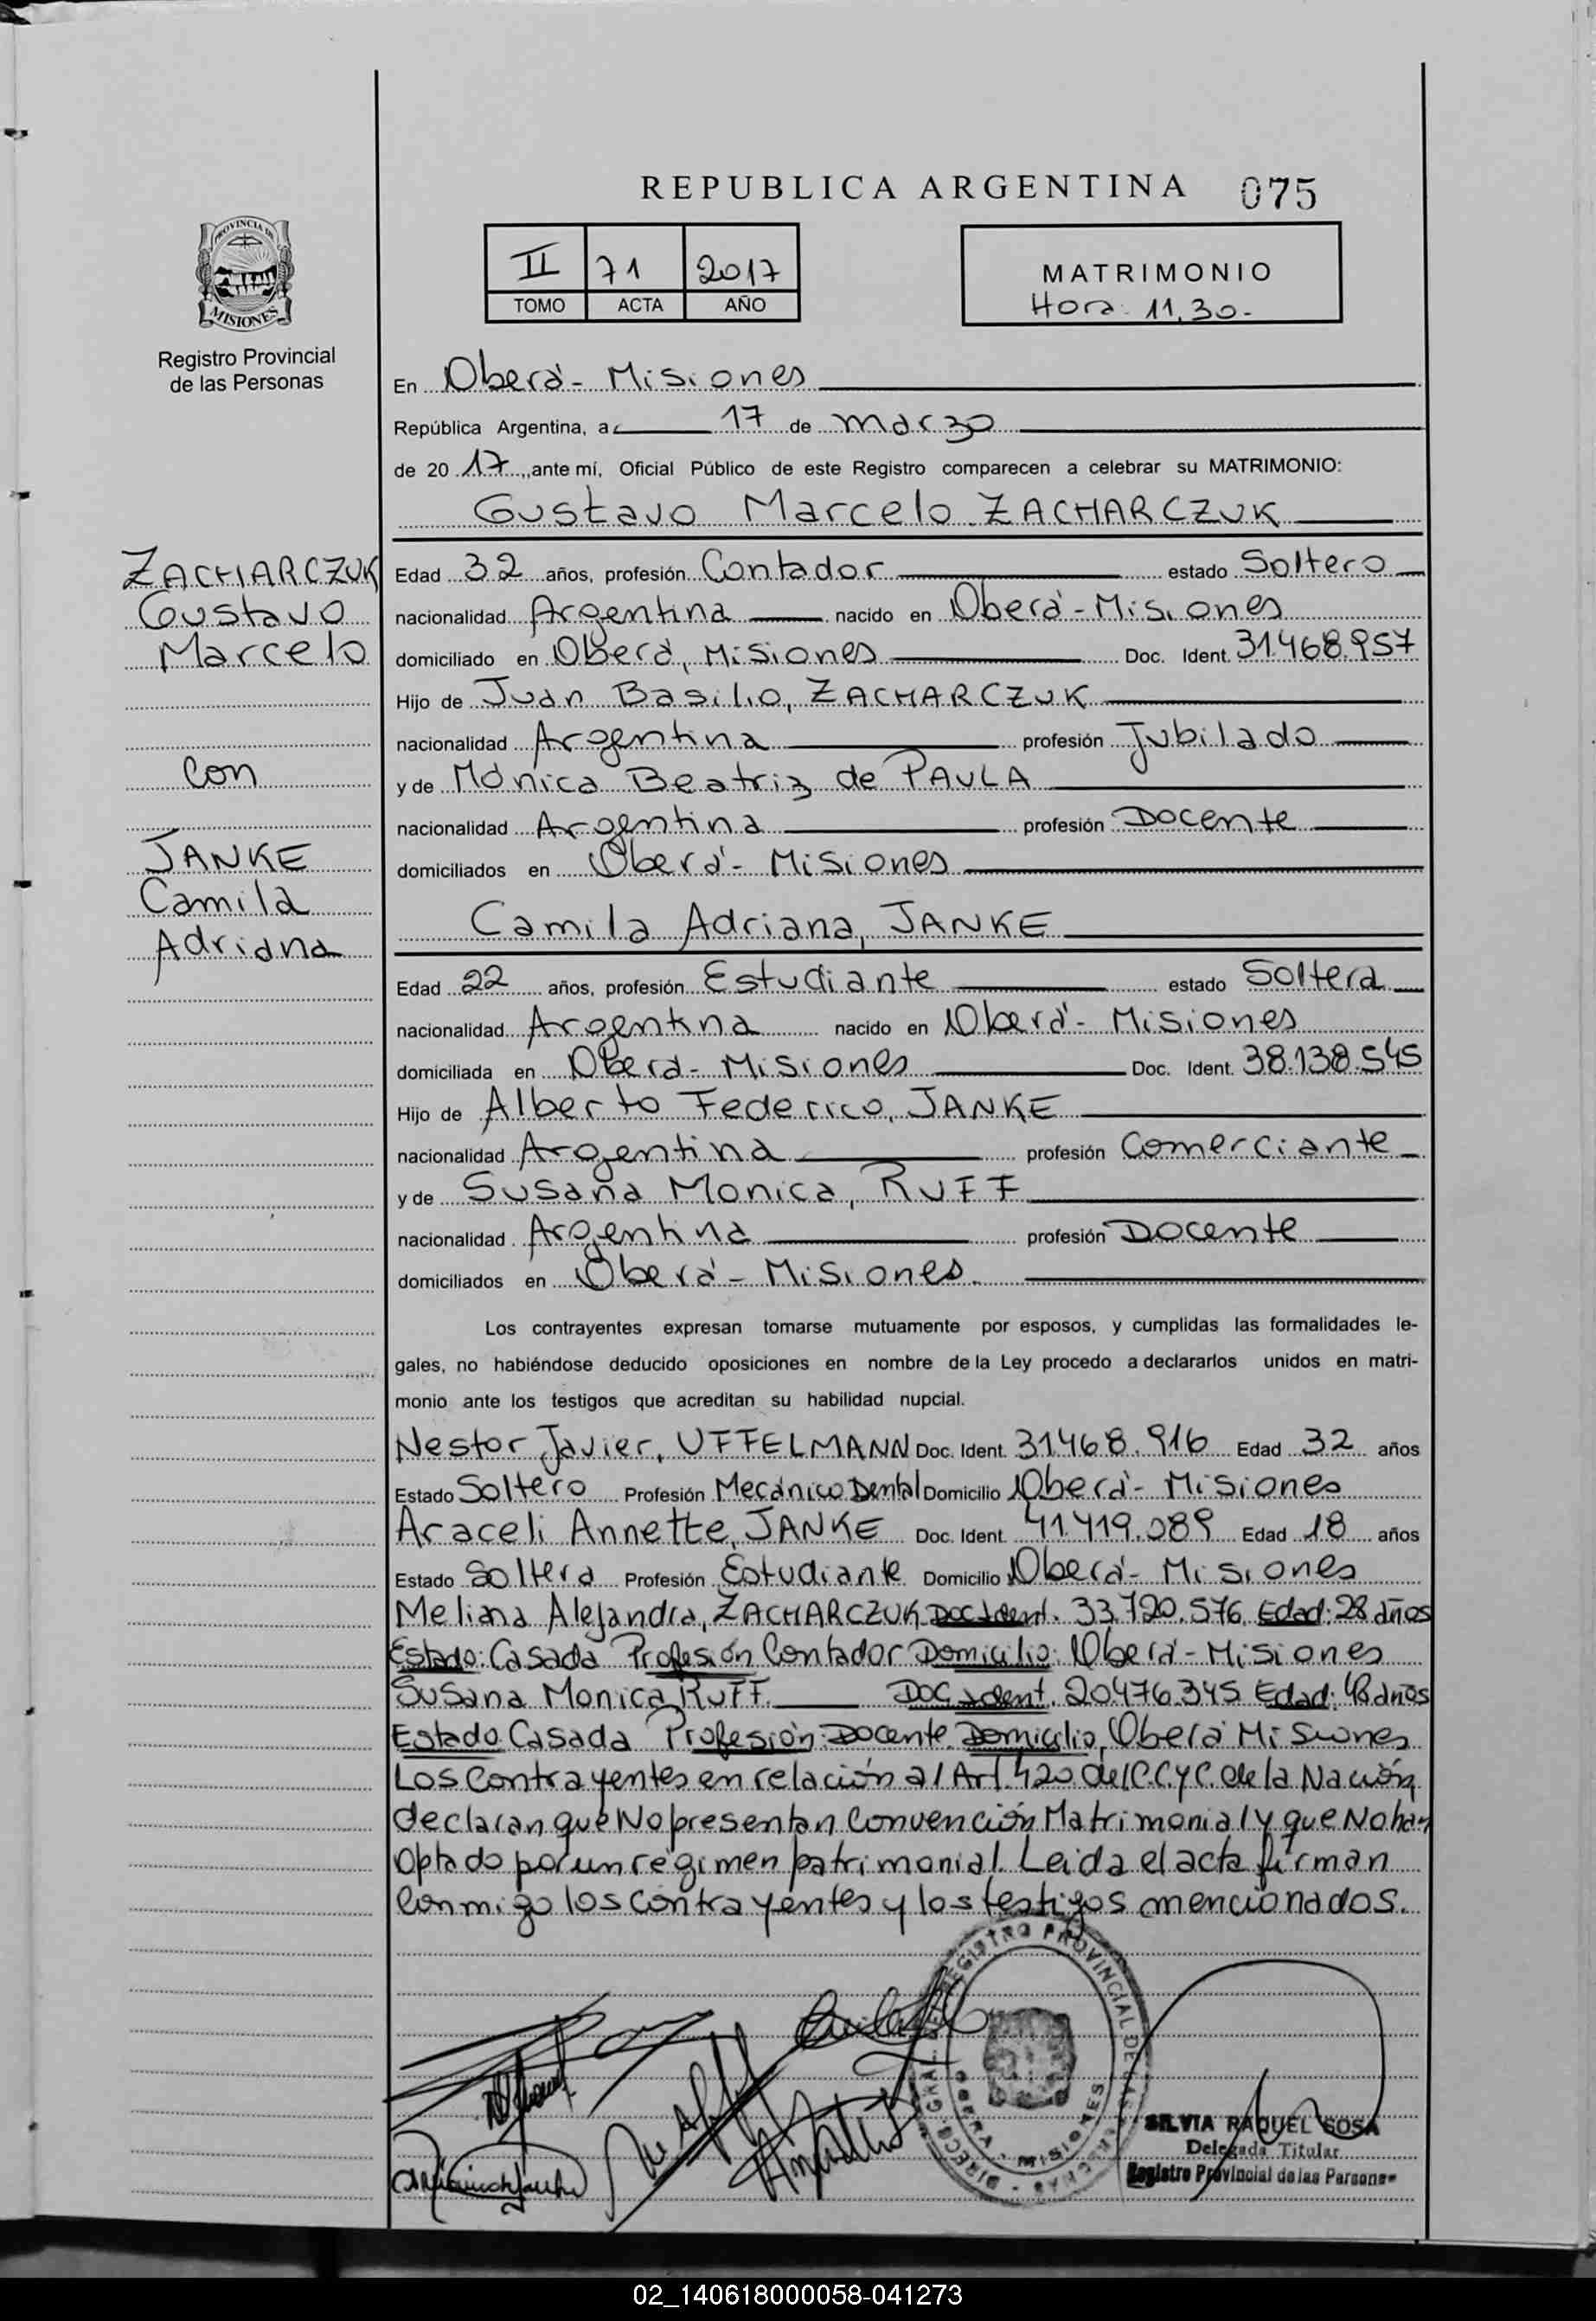 REPUBLICA ARGENTINA 075
PROVINCIA DE
MISIONES
Registro Provincial
de las Personas
II 71 2017
TOMO ACTA AÑO
MATRIMONIO
Hora: 11,30.-
En Oberá - Misiones
República Argentina, a 17 de marzo
de 20 17, ante mí, Oficial Público de este Registro comparecen a celebrar su MATRIMONIO:
Gustavo Marcelo ZACHARCZUK
ZACHARCZUK
Gustavo
Marcelo
con
JANKE
Camila
Adriana
Edad 32 años, profesión Contador estado Soltero
nacionalidad Argentina nacido en Oberá - Misiones
domiciliado en Oberá, Misiones Doc. Ident. 31.468.957
Hijo de Juan Basilio, ZACHARCZUK
nacionalidad Argentina profesión Jubilado
y de Mónica Beatriz de PAULA
nacionalidad Argentina profesión Docente
domiciliados en Oberá - Misiones
Camila Adriana, JANKE
Edad 22 años, profesión Estudiante estado Soltera
nacionalidad Argentina nacido en Oberá - Misiones
domiciliada en Oberá - Misiones Doc. Ident. 38.138.545
Hijo de Alberto Federico, JANKE
nacionalidad Argentina profesión Comerciante
y de Susana Monica, RUFF
nacionalidad Argentina profesión Docente
domiciliados en Oberá - Misiones.
Los contrayentes expresan tomarse mutuamente por esposos, y cumplidas las formalidades le-
gales, no habiéndose deducido oposiciones en nombre de la Ley procedo a declararlos unidos en matri-
monio ante los testigos que acreditan su habilidad nupcial.
Nestor Javier, UFFELMANN Doc. Ident. 31.468.916 Edad 32 años
Estado Soltero Profesión Mecánico Dental Domicilio Oberá - Misiones
Araceli Annette, JANKE Doc. Ident. 41.419.089 Edad 18 años
Estado Soltera Profesión Estudiante Domicilio Oberá - Misiones
Meliana Alejandra, ZACHARCZUK Doc Ident. 33.720.576 Edad: 28 años
Estado: Casada Profesión Contador Domicilio: Oberá - Misiones
Susana Monica, RUFF. Doc Ident. 20.476.345 Edad: 48 años
Estado Casada Profesión: Docente Domicilio, Oberá Misiones
Los Contrayentes en relación al Art. 420 del C.C.y C. de la Nación
declaran que No presentan Convención Matrimonial y que No han
optado por un régimen patrimonial. Leida el acta firman
conmigo los contrayentes y los testigos mencionados.
REGISTRO PROVINCIAL DE LAS
OBERA - MISIONES
SILVIA RAQUEL SOSA
Delegada Titular
Registro Provincial de las Personas
02_140618000058-041273